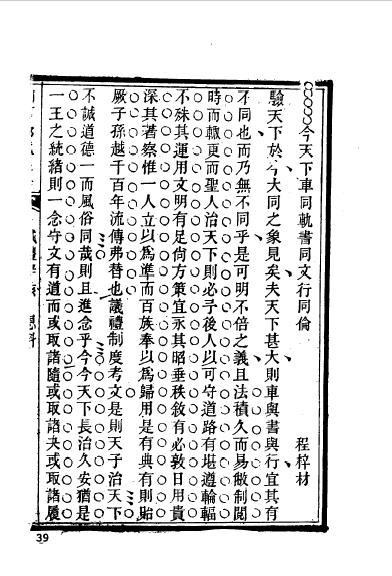 今天下車同軌書同文行同倫
程梓材
驗天下於今大同之象見矣夫天下甚大則車與書與行宜其有
不同也而乃無不同乎是可明不倍之義且法積久而易倣制閱
時而輒更而聖人治天下則必子後人以可守道路有堪遵輪輻
不殊其運用文明有足尚方策宜永其昭垂秩敘有必敦日用貴
深其著察惟一人立以為準而百族奉以為歸用是有典有則貽
厥子孫越千百年流傳弗替也議禮制度考文是則天子治天下
不誠道德一而風俗同哉則且進念乎今今天下長治久安猶是
一王之統緒則一念守文有道而或取諸隨或取諸夬或取諸履
39